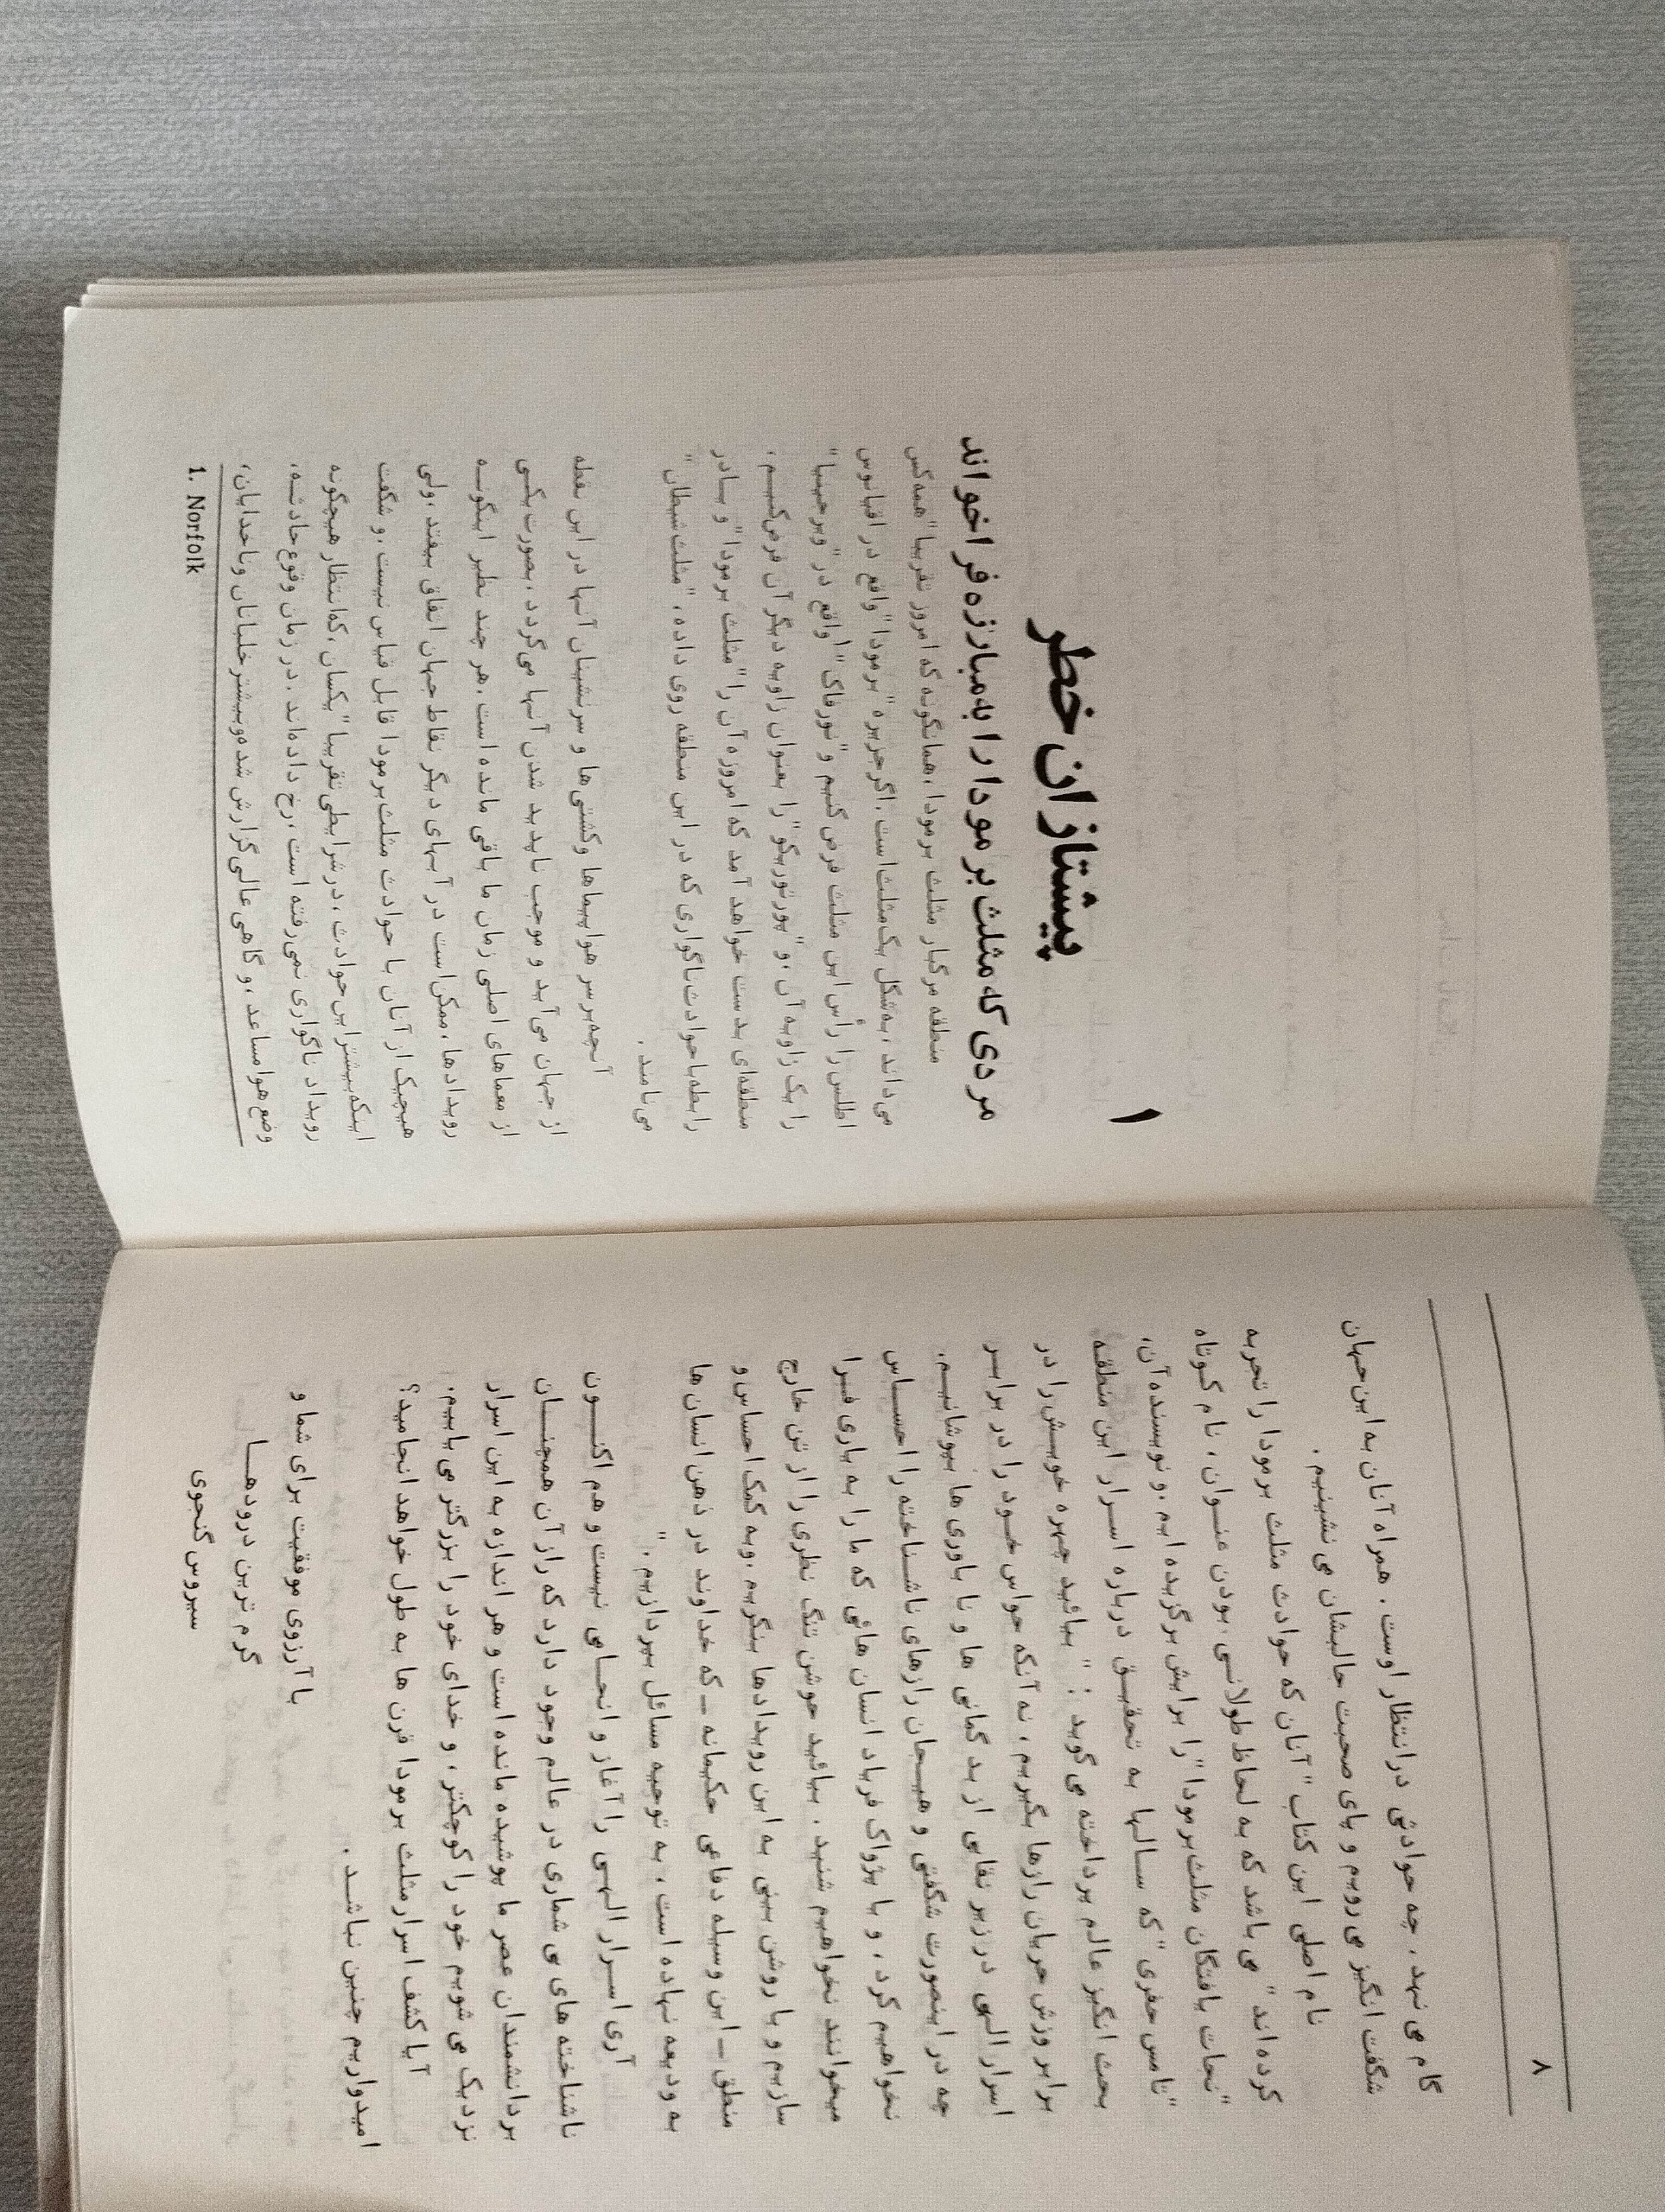 ۸
گام می نهد، چه حوادثی درانتظار اوست. همراه آنان به این جهان
شگفت انگیز می رویم و پای صحبت جالبشان می نشینیم.
نام اصلی این کتاب "آنان که حوادث مثلث برمودا را تجربه
کرده اند" می باشد که به لحاظ طولانـی بودن عنـوان، نام کوتاه
"نجات یافتگان مثلث برمودا" را برایش برگزیده ایم. و نویسنده آن،
"تامس جفری" که سـالها به تحقیـق درباره اسـرار این منطقه
بحث انگیز عالم پرداخته می گوید: "بیائید چهره خویـش را در
برابر وزش جریان رازها بگیریم، نه آنکه حواس خـود را در برابـر
اسرار الهی در زیر نقابی از بد گمانی ها و نا باوری ها بپوشانیـم.
چه در اینصورت شگفتی و هیـجان رازهای ناشـناخته را احسـاس
نخواهیم کرد، و با پژواک فریاد انسان هائی که ما را به یاری فـرا
میخوانند نخواهیم شنید. بیائید جوشن تنگ نظری را از تن خارج
سازیم و با روشن بینی به این رویدادها بنگریم. وبه کمک احساس و
منطق ـ این وسیله دفاعی حکیمانه ـ که خداوند در ذهن انسان ها
به ودیعه نهاده است، به توجیه مسائل بپردازیم."
آری اسـرار الهـی را آغاز و انجـامی نیست و هم اکنـــون
ناشناخته های بی شماری در عالم وجود دارد که راز آن همچنــان
بردانشمندان عصر ما پوشیده مانده است و هر اندازه به این اسرار
نزدیک می شویم خود را کوچکتر، و خدای خود را بزرگتر می یابیم.
آیا کشف اسرار مثلث برمودا قرن ها به طول خواهد انجامید؟
امیدواریم چنین نباشـد.
با آرزوی موفقیت برای شما و
گرم ترین درودهــا
سیروس گنجوی
۱
پیشتازان خطر
مردی که مثلث برمودا را به مبارزه فراخواند
منطقه مرگبار مثلث برمودا، همانگونه که امروز تقریبا" همه کس
می داند، به شکل یک مثلث است. اگر جزیره "برمودا" واقع در اقیانوس
اطلس را رأس این مثلث فرض کنیم و "نورفاک"۱ واقع در "ویرجینیا"
را یک زاویه آن، و "پورتوریکو" را بعنوان زاویه دیگر آن فرض کنیـم،
منطقه ای بدست خواهد آمد که امروزه آن را "مثلث برمودا" و یــادر
رابطه با حوادث ناگواری که در این منطقه روی داده، "مثلث شیطان"
می نامند.
آنچه برسر هواپیماها وکشتی ها و سرنشینان آنها در این نقطه
از جهان می آید و موجب ناپدید شدن آنها می گردد، بصورت یکــی
از معماهای اصلی زمان ما باقی مانده است. هر چند نظیر اینگونــه
رویدادها، ممکن است در آبهای دیگر نقاط جهان اتفاق بیفتد، ولی
هیچیک از آنان با حوادث مثلث برمودا قابل قیاس نیست. و شگفت
اینکه بیشتر این حوادث، در شرایطی تقریبا" یکسان، که انتظار هیچگونه
رویداد ناگواری نمی رفته است، رخ داده اند. در زمان وقوع حادثـه،
وضع هوا مساعد، و گاهی عالی گزارش شده و بیشتر خلبانان وناخدایان،
1. Norfolk